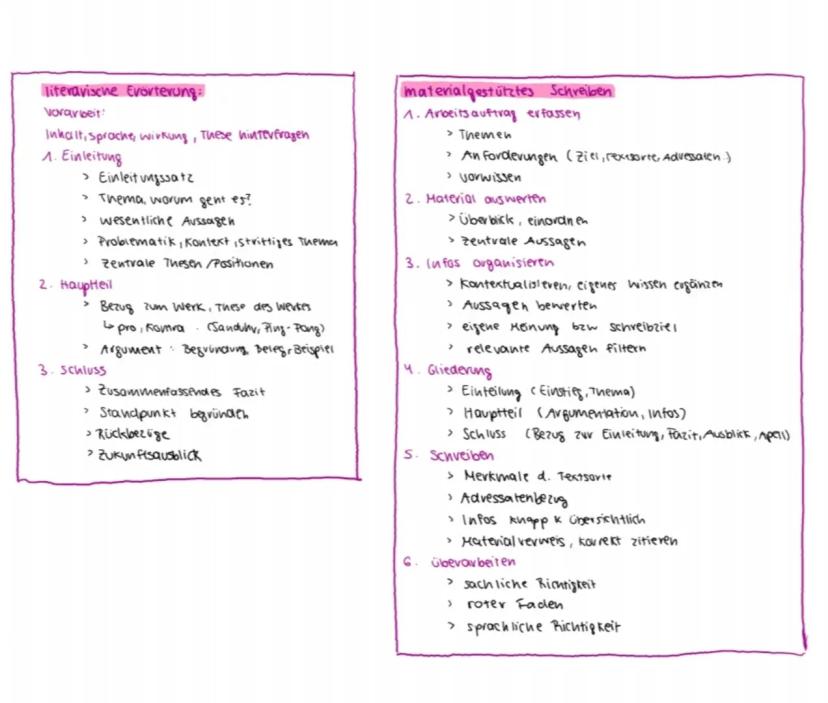 literarische Erörterung:
Vorarbeit:
Inhalt, Sprache, Wirkung, These hinterfragen
1. Einleitung
> Einleitungssatz
> Thema, worum geht es?
> wesentliche Aussagen
> Problematik, Kontext, strittiges Thema
> zentrale Thesen/Positionen
2. Hauptteil
> Bezug zum Werk, These des Werkes
↳ pro, Kontra. (Sanduhr, Ping-Pong)
> Argument: Begründung, Beleg, Beispiel
3. Schluss
> Zusammenfassendes Fazit
> Standpunkt begründen
> Rückbezüge
> Zukunftsausblick
materialgestütztes Schreiben
1. Arbeitsauftrag erfassen
> Themen
> Anforderungen (Ziel, Textsorte, Adressaten.)
> Vorwissen
2. Material auswerten
> Überblick, einordnen
> zentrale Aussagen
3. Infos organisieren
> Kontextualisieren, eigenes Wissen ergänzen
> Aussagen bewerten
> eigene Meinung bzw Schreibziel
> relevante Aussagen filtern
4. Gliederung
> Einteilung (Einstieg, Thema)
> Hauptteil (Argumentation, Infos)
> Schluss (Bezug zur Einleitung, Fazit, Ausblick, Apell)
5. Schreiben
> Merkmale d. Textsorte
> Adressatenbezug
> Infos knapp & übersichtlich
> Materialverweis, korrekt zitieren
6. überarbeiten
> sachliche Richtigkeit
> roter Faden
> sprachliche Richtigkeit